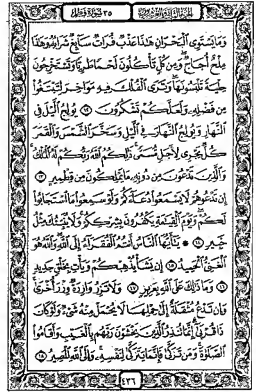 سورة فاطر ٣٥ الجزء الثاني والعشرون
وَمَا يَسْتَوِى ٱلْبَحْرَانِ هَٰذَا عَذْبٌ فُرَاتٌ سَآئِغٌ شَرَابُهُۥ وَهَٰذَا
مِلْحٌ أُجَاجٌ ۖ وَمِن كُلٍّ تَأْكُلُونَ لَحْمًا طَرِيًّا وَتَسْتَخْرِجُونَ
حِلْيَةً تَلْبَسُونَهَا ۖ وَتَرَى ٱلْفُلْكَ فِيهِ مَوَاخِرَ لِتَبْتَغُوا۟
مِن فَضْلِهِۦ وَلَعَلَّكُمْ تَشْكُرُونَ ١٢ يُولِجُ ٱلَّيْلَ فِى
ٱلنَّهَارِ وَيُولِجُ ٱلنَّهَارَ فِى ٱلَّيْلِ وَسَخَّرَ ٱلشَّمْسَ وَٱلْقَمَرَ
كُلٌّ يَجْرِى لِأَجَلٍ مُّسَمًّى ۚ ذَٰلِكُمُ ٱللَّهُ رَبُّكُمْ لَهُ ٱلْمُلْكُ ۚ
وَٱلَّذِينَ تَدْعُونَ مِن دُونِهِۦ مَا يَمْلِكُونَ مِن قِطْمِيرٍ ١٣
إِن تَدْعُوهُمْ لَا يَسْمَعُوا۟ دُعَآءَكُمْ وَلَوْ سَمِعُوا۟ مَا ٱسْتَجَابُوا۟
لَكُمْ ۖ وَيَوْمَ ٱلْقِيَٰمَةِ يَكْفُرُونَ بِشِرْكِكُمْ ۚ وَلَا يُنَبِّئُكَ مِثْلُ
خَبِيرٍ ١٤ ۞ يَٰٓأَيُّهَا ٱلنَّاسُ أَنتُمُ ٱلْفُقَرَآءُ إِلَى ٱللَّهِ ۖ وَٱللَّهُ هُوَ
ٱلْغَنِىُّ ٱلْحَمِيدُ ١٥ إِن يَشَأْ يُذْهِبْكُمْ وَيَأْتِ بِخَلْقٍ جَدِيدٍ
١٦ وَمَا ذَٰلِكَ عَلَى ٱللَّهِ بِعَزِيزٍ ١٧ وَلَا تَزِرُ وَازِرَةٌ وِزْرَ أُخْرَىٰ ۚ
وَإِن تَدْعُ مُثْقَلَةٌ إِلَىٰ حِمْلِهَا لَا يُحْمَلْ مِنْهُ شَىْءٌ وَلَوْ كَانَ
ذَا قُرْبَىٰٓ ۗ إِنَّمَا تُنذِرُ ٱلَّذِينَ يَخْشَوْنَ رَبَّهُم بِٱلْغَيْبِ وَأَقَامُوا۟
ٱلصَّلَوٰةَ ۚ وَمَن تَزَكَّىٰ فَإِنَّمَا يَتَزَكَّىٰ لِنَفْسِهِۦ ۚ وَإِلَى ٱللَّهِ ٱلْمَصِيرُ ١٨
٤٣٦